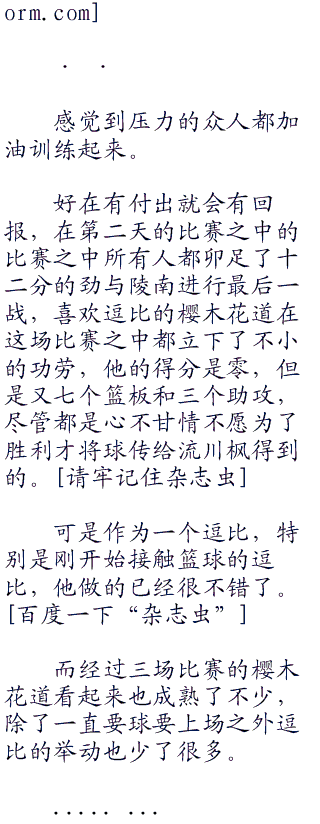 orm.com]
. .
感觉到压力的众人都加
油训练起来。
好在有付出就会有回
报，在第二天的比赛之中的
比赛之中所有人都卯足了十
二分的劲与陵南进行最后一
战，喜欢逗比的樱木花道在
这场比赛之中都立下了不小
的功劳，他的得分是零，但
是又七个篮板和三个助攻，
尽管都是心不甘情不愿为了
胜利才将球传给流川枫得到
的。[请牢记住杂志虫]
可是作为一个逗比，特
别是刚开始接触篮球的逗
比，他做的已经很不错了。
[百度一下“杂志虫”]
而经过三场比赛的樱木
花道看起来也成熟了不少，
除了一直要球要上场之外逗
比的举动也少了很多。
..... ...